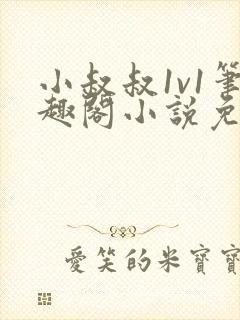 小叔叔1v1筆
趣閣小說免
愛笑的米寶寶